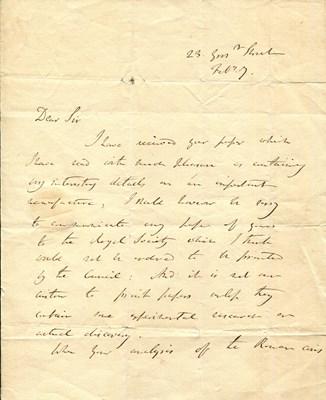 23 Gros.r Street
Feby 7.
Dear Sir
I have received your paper which
I have read with much pleasure as containing
very interesting details on an important
manufacture; I should however be sorry
to communicate any paper of yours
to the Royal Society which I think
would not be ordered to be printed
by the Council: And it is not our
custom to print papers unless they
contain some experimental researches or
actual discovery.
When your analysis of the Roman coins